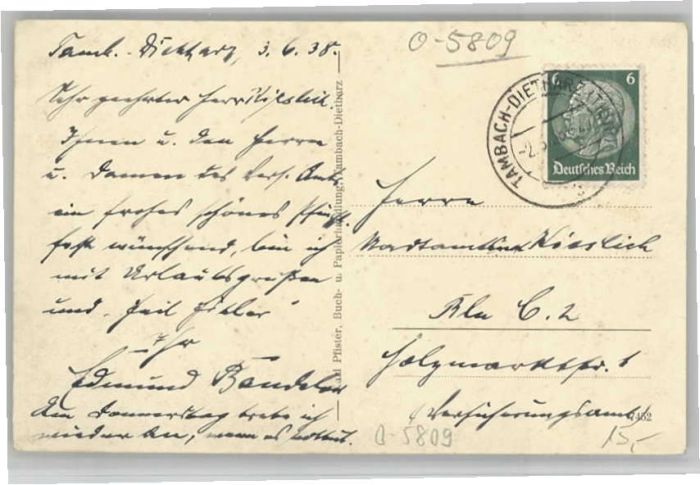 Tamb.-Dietharz, 3.6.38.
Sehr geehrter Herr
Ihnen u. den Herren
u. Damen des Vers. Amts
ein frohes schönes Pfingst
fest wünschend, bin ich
mit Urlaubsgrüßen
und "Heil Hitler"
Ihr
Edmund Bandelow
Am Donnerstag trete ich
wieder an, wenn es
O-5809
TAMBACH-DIETHARZ (THÜR)
6 6
Deutsches Reich
Pfister, Buch- u. Papierhandlung, Tambach-Dietharz
Herrn
Stadtamtmann
Bln C. 2
Holzmarktstr. 1
Versicherungsamt
7452
O-5809
15,-